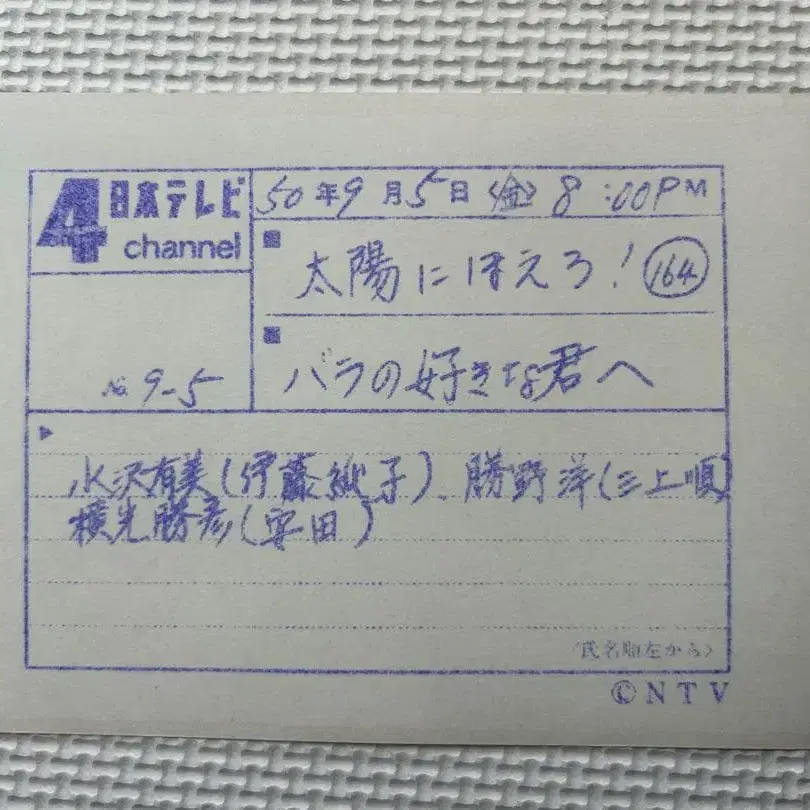 4 日本テレビ
channel
50年9月5日〈金〉8:00PM
■ 太陽にほえろ! 164
■ バラの好きな君へ
No. 9-5
水沢有美(伊藤 子)、勝野洋(三上順)
横光勝彦(安田)
〈氏名順左から〉
©NTV